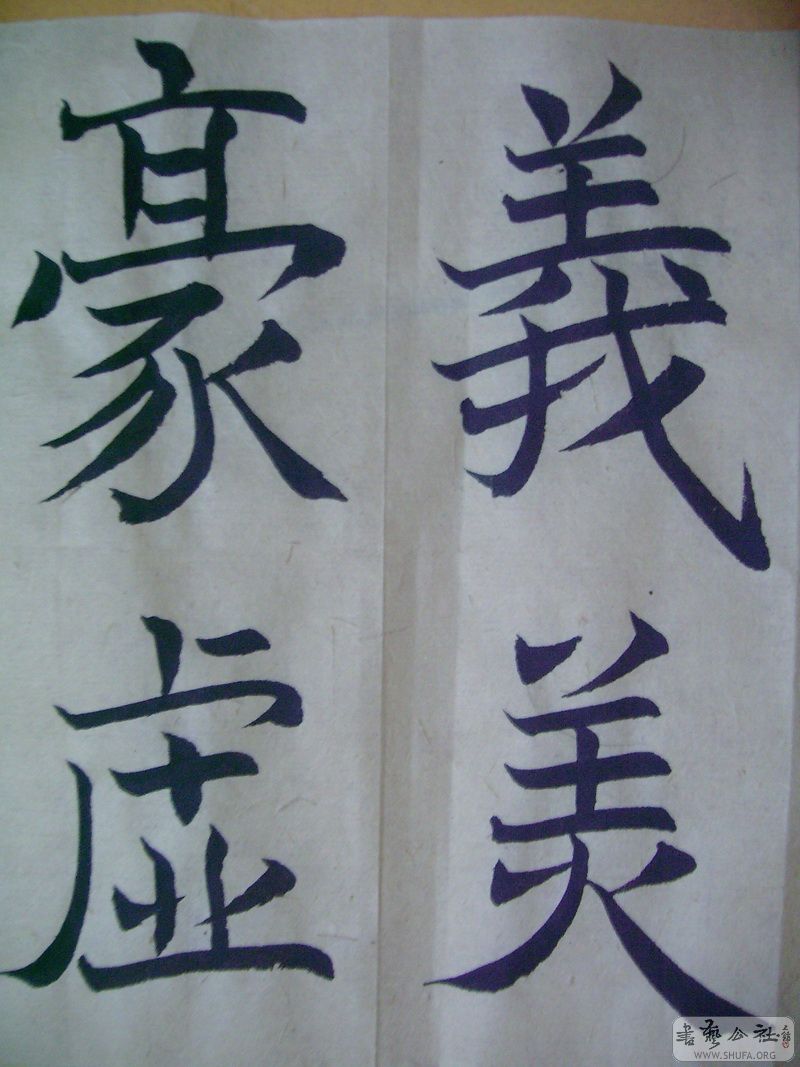 義美
豪虛
書藝公社
WWW.SHUFA.ORG